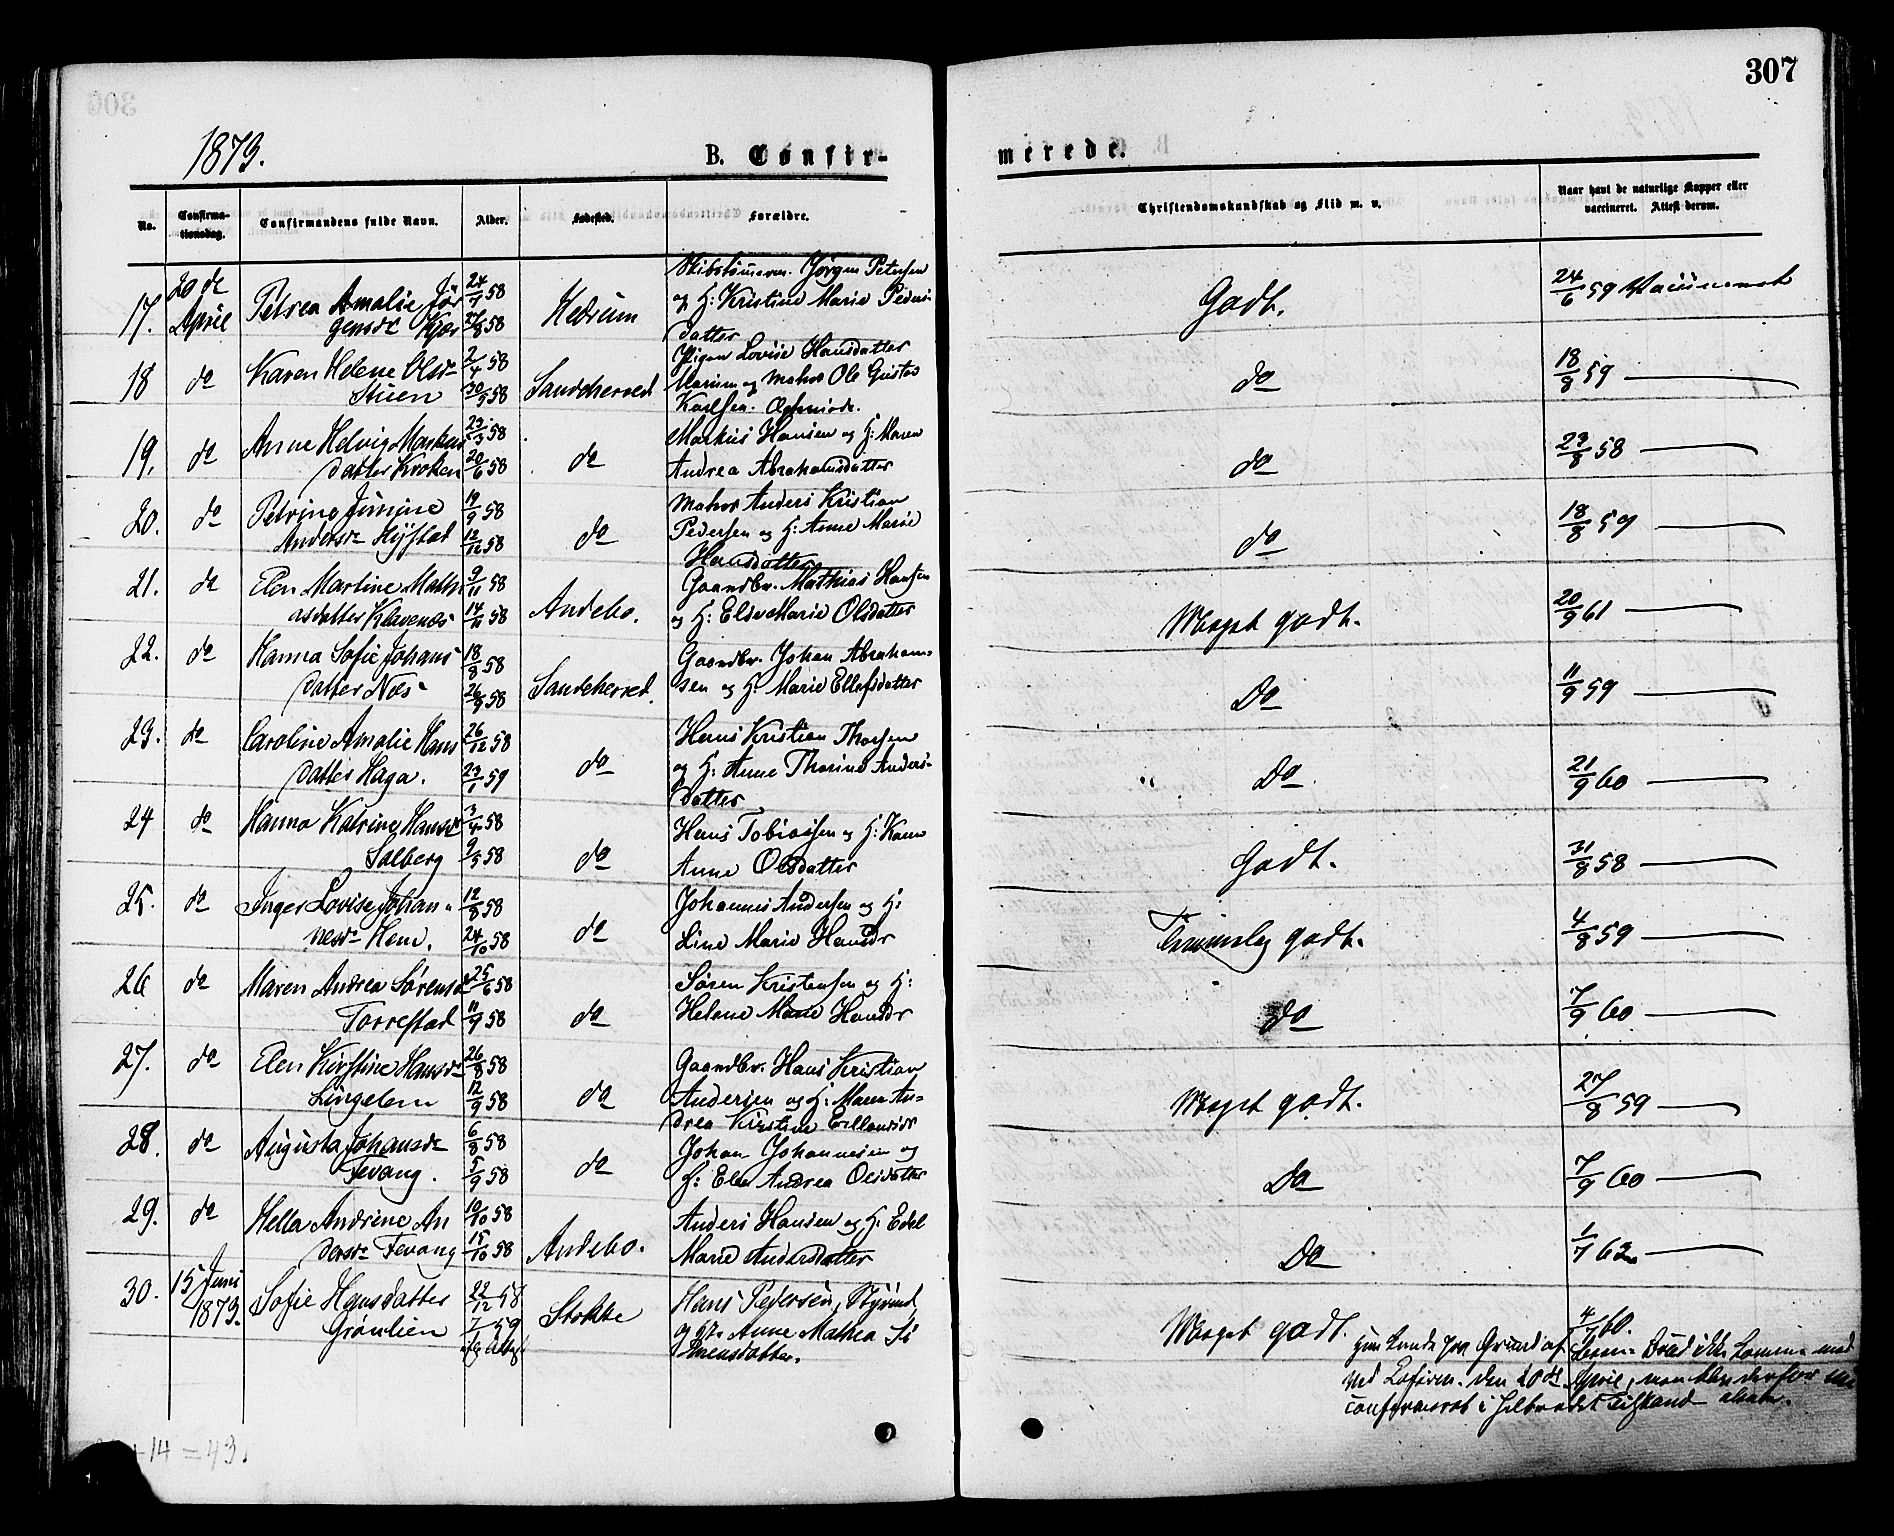 307
1873.
B. Confir-
merede.
No.
Confirma-
tionsdag.
Confirmandens fulde Navn.
Alder.
Fødested.
Forældre.
Christendomskundskab og Flid m. v.
Naar havt de naturlige Kopper eller
vaccineret. Attest derom.
17. 20de April Petrea Amalie Jör
gensdr Kjær 24/7 58 58 Hedrum
Jörgen Petersen
og H: Kristine Marie Peders-
datter
Godt. 24/6 59
18 do Karen Helene Olsdr
Stuen 2/4 58 30/5 58 Sandeherred
Pigen Lovise Hansdatter
og Matros Ole Gustav
Karlsen.
do 18/8 59
19. do Anne Helvig Markus
datter Kroken 23/3 58 20/6 58 do
Markus Hansen og H: Maren
Andrea Abrahamsdatter
do 23/8 58
20. do Petrine Jimine
Andersdr Hystad 19/9 58 12/12 58 do
Matros Anders Kristian
Pedersen og H: Anne Marie
Hansdatter
do 18/8 59
21. do Elen Martine Mathi
asdatter Klavenæs 9/11 58 14/11 58 Andebo.
Gaardbr. Mathias Hansen
og H: Else Marie Olsdatter
Meget godt. 20/9 61
22. do Hanna Sofie Johans
datter Næs 18/8 58 26/9 58 Sandeherred.
Gaardbr. Johan Abraham-
sen og H: Marie Ellefsdatter
Do 11/9 59
23. do Caroline Amalie Hans
datter Haga. 26/12 58 23/1 59 do
Hans Kristian Thorsen
og H: Anne Thorine Anders-
datter
Do 21/9 60
24 do Hanna Katrine Hansdr
Solberg 3/4 58 9/5 58 do
Hans Tobiassen og H: Karen
Anne Olsdatter
Godt. 31/8 58
25. do Inger Lovise Johan-
nesdr Hem. 12/8 58 24/10 58 do
Johannes Andersen og H:
Line Marie Hansdr
Temmelig godt. 4/8 59
26 do Maren Andrea Sørensdr
Torrestad 25/6 58 11/9 58 do
Søren Kristensen og H:
Helene Marie Hansdr
do 7/9 60
27. do Elen Kirstine Hansdr
Lingelem 26/8 58 12/9 58 do
Gaardbr. Hans Kristian
Andersen og H: Maren An-
drea Kirstine Erlandsdr
Meget godt. 27/8 59
28. do Augusta Johansdr
Fevang. 6/8 58 5/9 58 do
Johan Johannesen og
H: Else Andrea Olsdatter
Do 7/9 60
29. do Hella Andrine An
dersdr Fevang 10/10 58 15/10 58 Andebo.
Anders Hansen og H: Edel
Marie Andersdatter
Do 1/7 62
30. 15 Juni 1873. Sofie Hansdatter
Grønlien 22/12 58 7/ 59 Stokke
Hans Pedersen, Styrmd,
og H. Anne Mathea Si
mensdatter.
Meget godt. 4/7 60.
Hun kunde paa Grund af ikke komme med
ved den 20de April, men blev derfor
confirmeret i
+14 = 43.